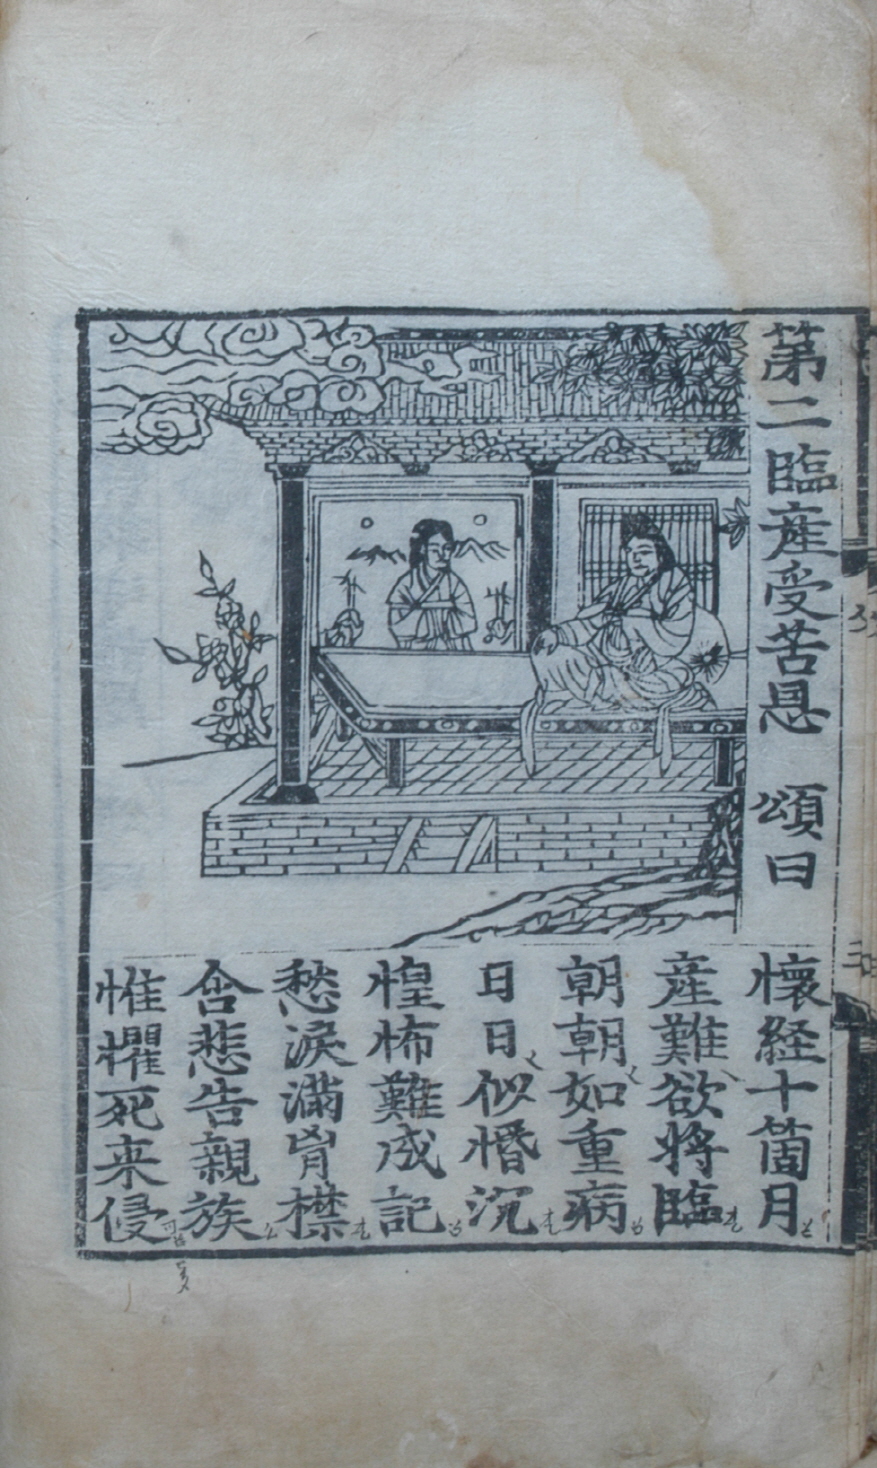 第二臨産受苦恩 頌曰
懷経十箇月
産難欲將臨
朝朝如重病
日日似惛沉
惶怖難成記
愁淚滿胷襟
含悲告親族
惟懼死来侵